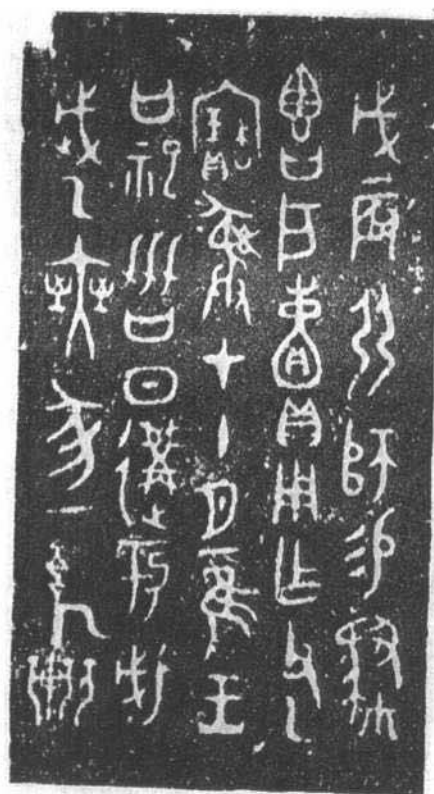 戊辰弜師易肆
貝用乍父乙
寶彝才十月一隹王
廿祀劦日遘于妣
戊武乙奭豕一旅